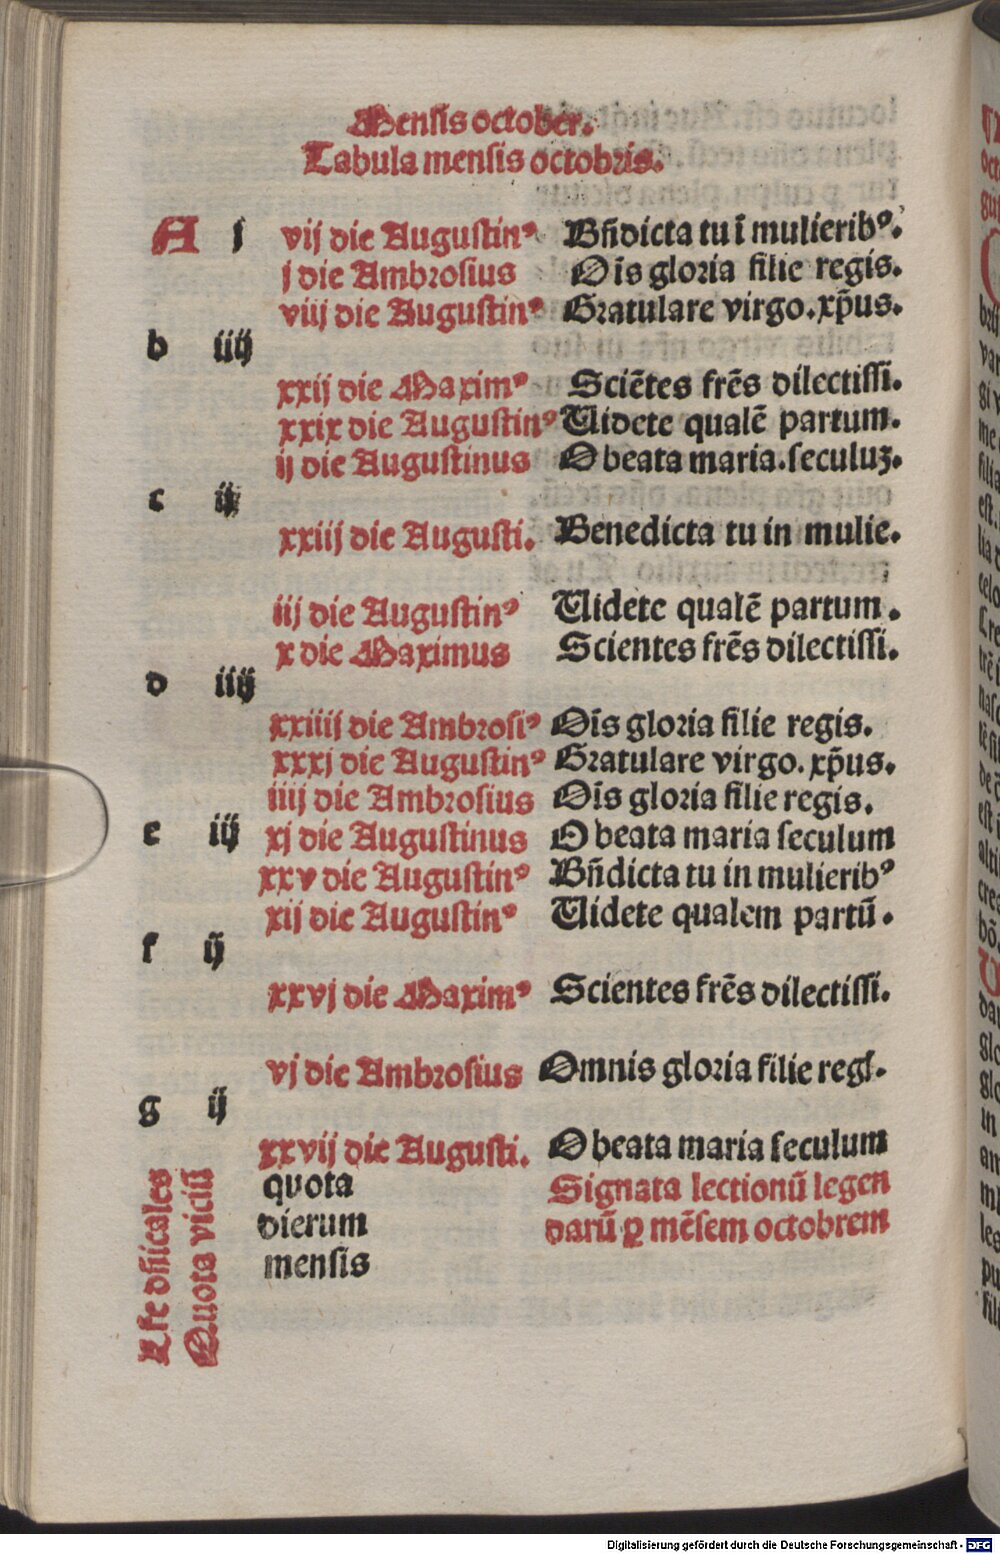 Mensis october.
Tabula mensis octobris.
A j vij die Augustinꝰ Bn̄dicta tu ī mulieribꝰ.
j die Ambrosius Oīs gloria filie regis.
viij die Augustinꝰ Gratulare virgo. xp̄us.
b iiij
xxij die Maximꝰ Sciētes frēs dilectissi.
xxix die Augustinꝰ Uidete qualē partum.
ij die Augustinus O beata maria. seculuꝫ.
c ij
xxiij die Augusti. Benedicta tu in mulie.
iij die Augustinꝰ Uidete qualē partum.
x die Maximus Scientes frēs dilectissi.
d iiij
xxiiij die Ambrosiꝰ Oīs gloria filie regis.
xxxj die Augustinꝰ Gratulare virgo. xp̄us.
iiij die Ambrosius Oīs gloria filie regis.
e iij xj die Augustinus O beata maria seculum
xxv die Augustinꝰ Bn̄dicta tu in mulieribꝰ
xij die Augustinꝰ Uidete qualem partū.
f ij
xxvj die Maximꝰ Scientes frēs dilectissi.
vj die Ambrosius Omnis gloria filie regl.
g ij
xxvij die Augusti. O beata maria seculum
quota Signata lectionū legen
dierum darū ꝑ mēsem octobrem
mensis
Lr̄e dn̄icales
Quota viciū
Digitalisierung gefördert durch die Deutsche Forschungsgemeinschaft - DFG